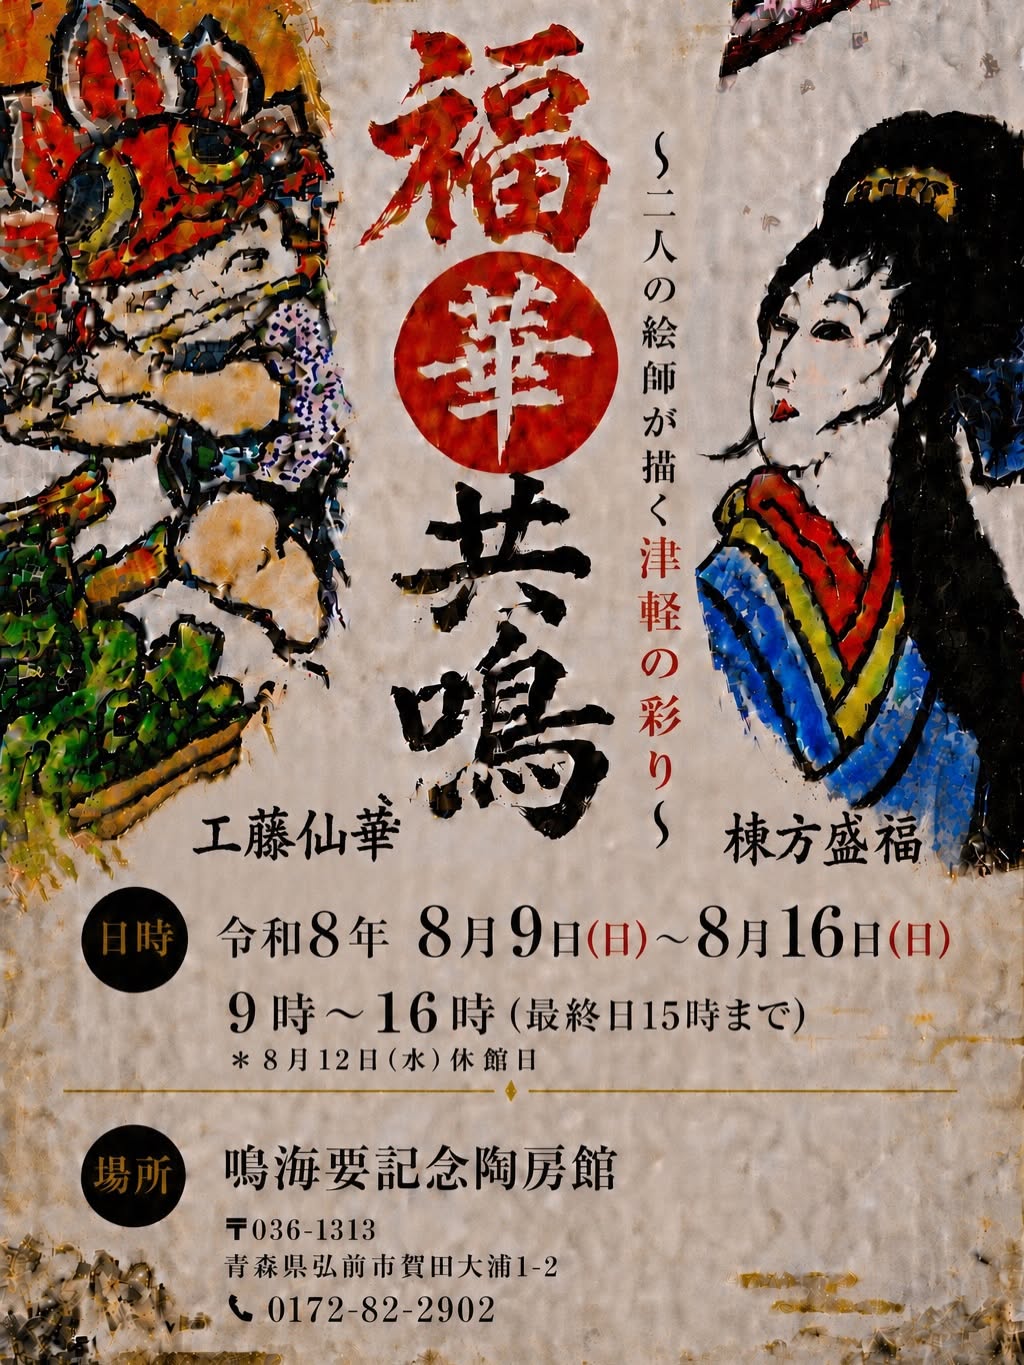 福華共鳴
～二人の絵師が描く津軽の彩り～
工藤仙華
棟方盛福
日時
令和8年 8月9日(日)～8月16日(日)
9時～16時(最終日15時まで)
＊8月12日(水)休館日
場所
鳴海要記念陶房館
〒036-1313
青森県弘前市賀田大浦1-2
0172-82-2902